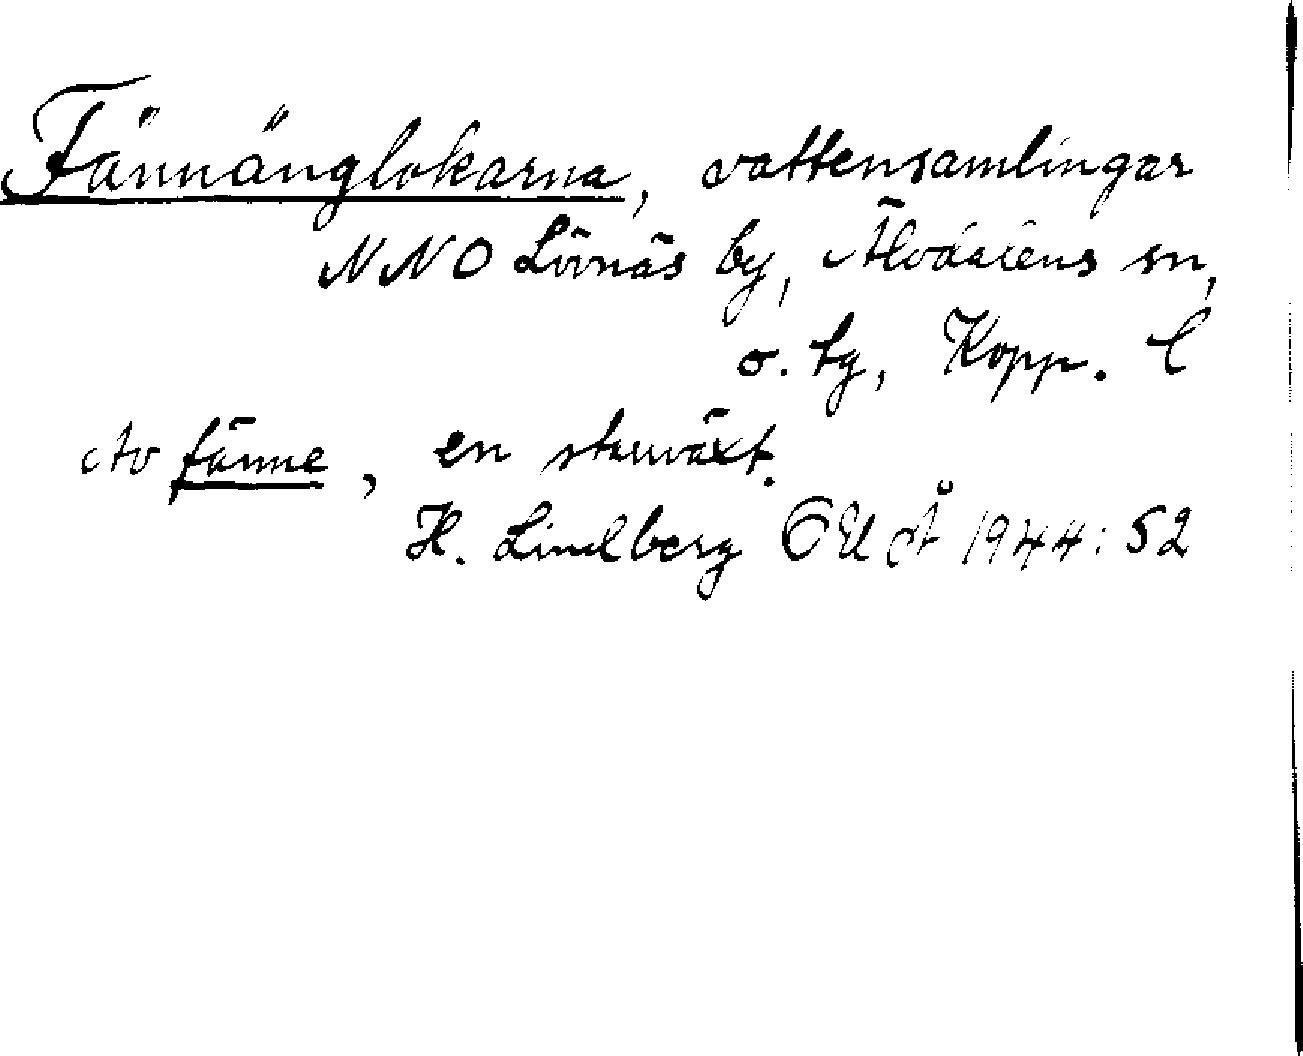 Fännänglokarna, vattensamlingar
NNO Lövnäs by, Älvdalens sn,
o. tg, Kopp. l
Av fänne, en starrväxt.
H. Lindberg OUÅ 1944: 52